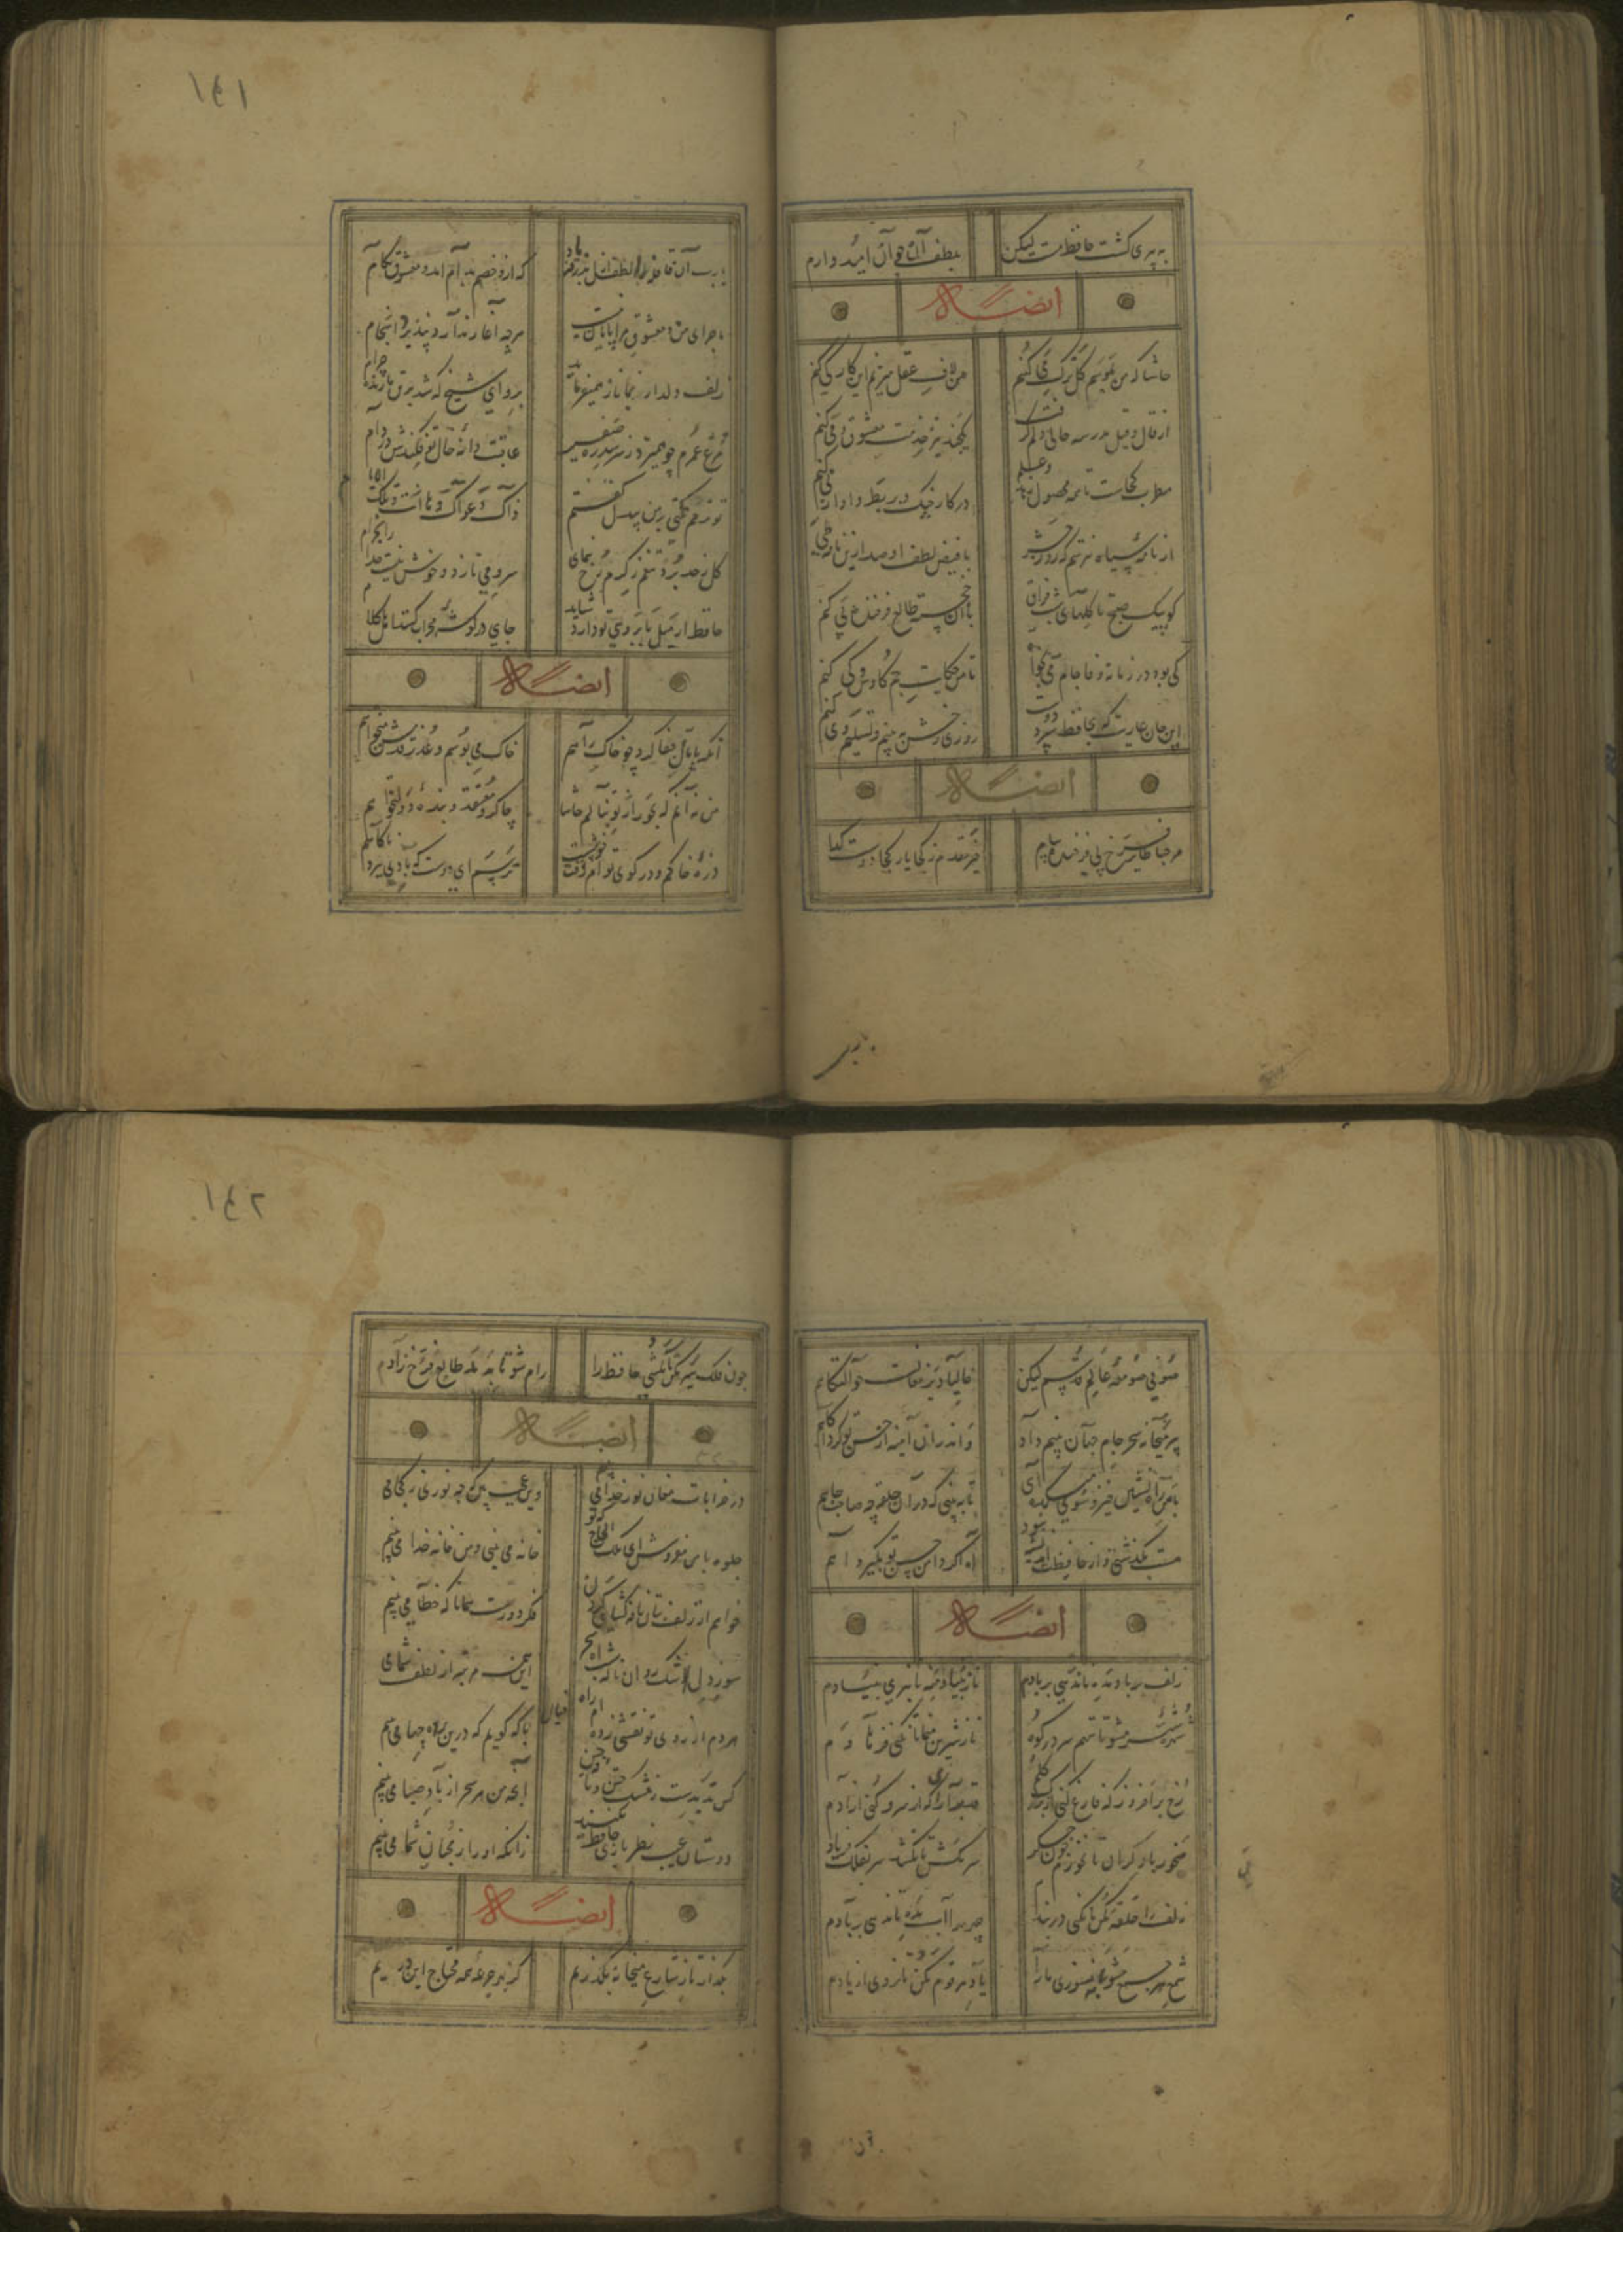 ۱۴۱
به پیری گشت حافظ مست لیکن
بلطف آن امیدوارم
ایضاً له
حاشا که من بموسم گل ترک می کنم
من لاف عقل میزنم این کار کی کنم
از قال و قیل مدرسه حالی دلم گرفت
یکچند نیز خدمت معشوق و می کنم
مطرب کجاست تا همه محصول زهد و علم
در کار چنگ و بربط و آواز نی کنم
از نامه سیاه نترسم که روز حشر
با فیض لطف او صد ازین نامه طی کنم
کو پیک صبح تا گلهای شب فراق
با آن خجسته طالع فرخنده پی کنم
کی بود در زمانه وفا جام می بخواه
تا من حکایت جم و کاوس و کی کنم
این جان عاریت که بحافظ سپرد دوست
روزی رخش ببینم و تسلیم وی کنم
ایضاً له
مرحبا طایر فرخ پی فرخنده پیام
خیر مقدم ز کجا یار کجا دوست کدام
یارب آن قافله را لطف ازل بدرقه باد
که ازو خصم بدام آمد و معشوق بکام
ماجرای من و معشوق مرا پایان نیست
هرچه آغاز ندارد نپذیرد انجام
زلف دلدار نماز همیفرماید
برو ای شیخ که شد بر تن ما خرقه حرام
مرغ عمرم چو همیزد ز سر سدره صفیر
عاقبت دانه خال تو فکندش در دام
گل ز حد برد تنعم ز کرم رخ بنمای
سرو می نازد و خوش نیست خدا را بخرام
حافظ ار میل بابروی تو دارد شاید
جای در گوشه محراب کنند اهل کلام
ایضاً له
آنکه پامال جفا کرد چو خاک راهم
خاک می بوسم و عذر قدمش میخواهم
من نه آنم که بجور از تو بنالم حاشا
چاکر و معتقد و بنده دولتخواهم
ذره خاکم و در کوی توام وقت خوشست
ترسم ای دوست که بادی ببرد ناگاهم
۱۴۲
صوفی صومعه عالم قدسم لیکن
حالیا دیر مغانست حوالتگاهم
پیر میخانه سحر جام جهان بینم داد
واندران آینه از حسن تو کرد آگاهم
با من راه نشین خیز و سوی میکده آی
تا ببینی که در آن حلقه چه صاحب جاهم
مست بگذشتی و از حافظت اندیشه نبود
آه اگر دامن حسن تو بگیرد آهم
ایضاً له
زلف بر باد مده تا ندهی بر بادم
ناز بنیاد منه تا نبری بنیادم
شهره شهر مشو تا ننهم سر در کوه
ناز شیرین منما تا نکنی فرهادم
رخ برافروز که فارغ کنی از برگ گلم
قد برافراز که از سرو کنی آزادم
می مخور با دگران تا نخورم خون جگر
سر مکش تا نکشد سر بفلک فریادم
زلف را حلقه مکن تا نکنی در بندم
چهره را آب مده تا ندهی بر بادم
شمع هر جمع مشو ورنه بسوزی ما را
یاد هر قوم مکن تا نروی از یادم
چون فلک سیر مکن تا نکشی حافظ را
رام شو تا بدهد طالع فرخ زادم
ایضاً له
در خرابات مغان نور خدا می بینم
وین عجب بین که چه نوری ز کجا می بینم
جلوه با من مفروش ای ملک الحاج که تو
خانه می بینی و من خانه خدا می بینم
خواهم از زلف بتان نافه گشایی کردن
فکر دورست همانا که خطا می بینم
این همه مرتبه از لطف شما می
هر دم از روی تو نقشی زندم راه خیال
با که گویم که درین پرده چها می بینم
کس ندیدست ز مشک ختن و نافه چین
آنچه من هر سحر از باد صبا می بینم
دوستان عیب نظربازی حافظ مکنید
زانکه او را ز محبان شما می بینم
ایضاً له
بگذار تا ز شارع میخانه بگذریم
کز بهر جرعه همه محتاج این دریم